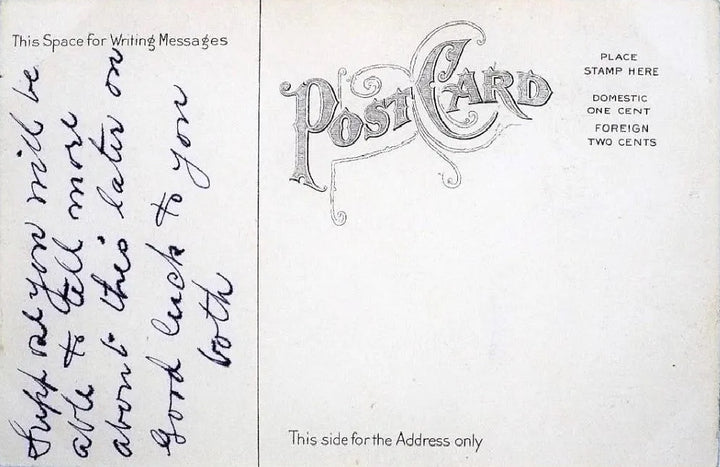 This Space for Writing Messages
Suppose you will be
able to tell more
about this later on
Good luck to you
both
POST CARD
PLACE
STAMP HERE
DOMESTIC
ONE CENT
FOREIGN
TWO CENTS
This side for the Address only